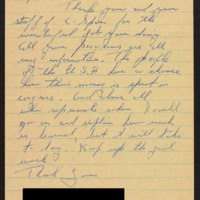 Thank you and your
staff of C-Span for the
wonderful job your doing
All your programs are all
very informative. The people
of the U.S.A. have a chance
how their money is spent in
congress. And above all
who represents whom. I could
go on and explain how much
is learned, but it will take
to long. Keep up the good
work.
Thank You